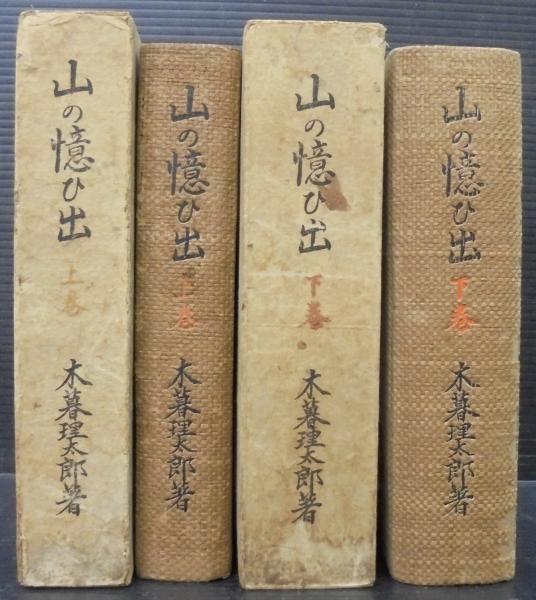 山の憶ひ出
上巻
木暮理太郎著
山の憶ひ出
上巻
木暮理太郎著
山の憶ひ出
下巻
木暮理太郎著
山の憶ひ出
下巻
木暮理太郎著